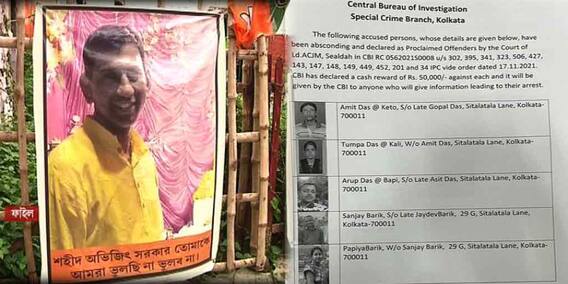 ফাইল
শহীদ অভিজিৎ সরকার তোমাকে
আমরা ভুলছি না ভুলব না।
Central Bureau of Investigation
Special Crime Branch, Kolkata
The following accused persons, whose details are given below, have
been absconding and declared as Proclaimed Offenders by the Court of
Ld.ACJM, Sealdah in CBI RC 0562021S0008 u/s 302, 395, 341, 323, 506, 427,
143, 147, 148, 149, 449, 452, 201 and 34 IPC vide order dated 17.11.2021.
CBI has declared a cash reward of Rs. 50,000/- against each and it will be
given by the CBI to anyone who will give information leading to their arrest.
Amit Das @ Keto, S/o Late Gopal Das, Sitalatala Lane, Kolkata-
700011
Tumpa Das @ Kali, W/o Amit Das, Sitalatala Lane, Kolkata-
700011
Arup Das @ Bapi, S/o Late Asit Das, Sitalatala Lane, Kolkata-
700011
Sanjay Barik, S/o Late JaydevBarik, 29 G, Sitalatala Lane,
Kolkata-700011
PapiyaBarik, W/o Sanjay Barik, 29 G, Sitalatala Lane, Kolkata-
700011